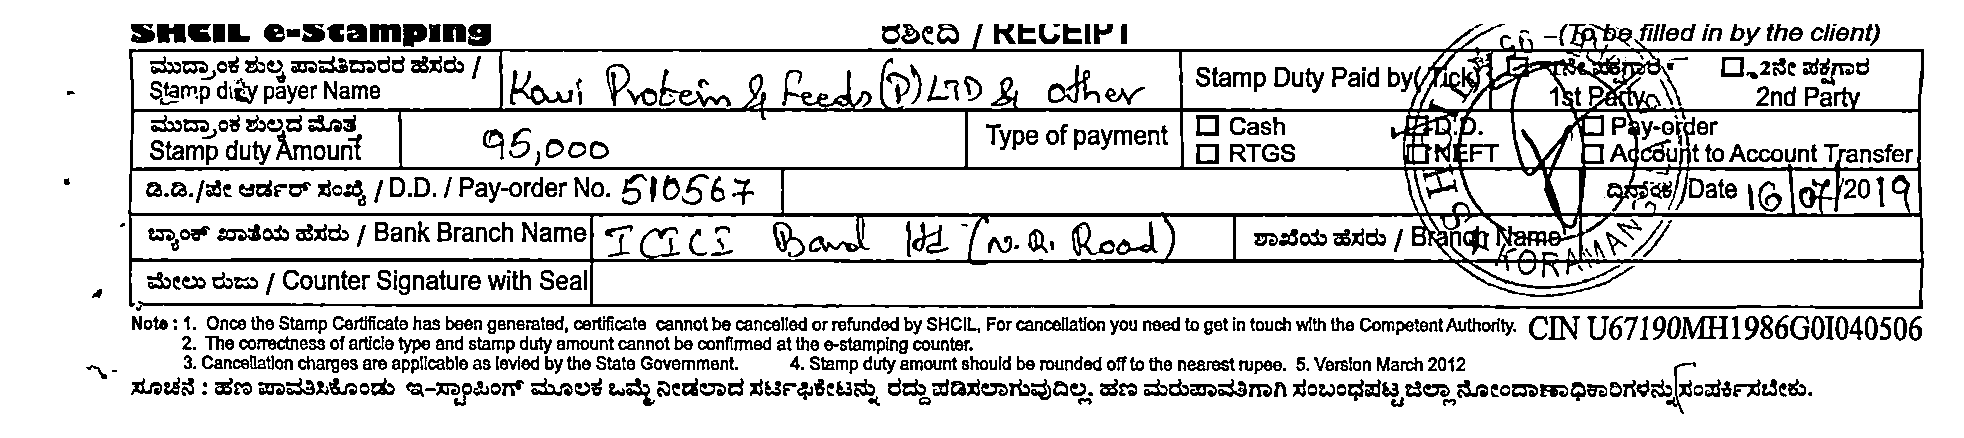 SHCIL e-Stamping ರಶೀದಿ / RECEIPT (To be filled in by the client)
ಮುದ್ರಾಂಕ ಶುಲ್ಕ ಪಾವತಿದಾರರ ಹೆಸರು /
Stamp duty payer Name
Kavi Protein & Feeds (P) LTD & other
Stamp Duty Paid by (Tick)
1ನೇ ಪಕ್ಷಗಾರ
1st Party
2ನೇ ಪಕ್ಷಗಾರ
2nd Party
ಮುದ್ರಾಂಕ ಶುಲ್ಕದ ಮೊತ್ತ
Stamp duty Amount
95,000
Type of payment
Cash D.D. Pay-order
RTGS NEFT Account to Account Transfer
ಡಿ.ಡಿ./ಪೇ ಆರ್ಡರ್ ಸಂಖ್ಯೆ / D.D. / Pay-order No. 510567
ದಿನಾಂಕ /Date 16/07/2019
ಬ್ಯಾಂಕ್ ಖಾತೆಯ ಹೆಸರು / Bank Branch Name ICICI Band ltd (N.R. Road) ಶಾಖೆಯ ಹೆಸರು / Branch Name
ಮೇಲು ರುಜು / Counter Signature with Seal
KORAMANGALA
Note : 1. Once the Stamp Certificate has been generated, certificate cannot be cancelled or refunded by SHCIL, For cancellation you need to get in touch with the Competent Authority. CIN U67190MH1986G0I040506
2. The correctness of article type and stamp duty amount cannot be confirmed at the e-stamping counter.
3. Cancellation charges are applicable as levied by the State Government. 4. Stamp duty amount should be rounded off to the nearest rupee. 5. Version March 2012
ಸೂಚನೆ : ಹಣ ಪಾವತಿಸಿಕೊಂಡು ಇ-ಸ್ಟಾಂಪಿಂಗ್ ಮೂಲಕ ಒಮ್ಮೆ ನೀಡಲಾದ ಸರ್ಟಿಫಿಕೇಟನ್ನು ರದ್ದು ಪಡಿಸಲಾಗುವುದಿಲ್ಲ. ಹಣ ಮರುಪಾವತಿಗಾಗಿ ಸಂಬಂಧಪಟ್ಟ ಜಿಲ್ಲಾ ನೋಂದಣಾಧಿಕಾರಿಗಳನ್ನು ಸಂಪರ್ಕಿಸಬೇಕು.